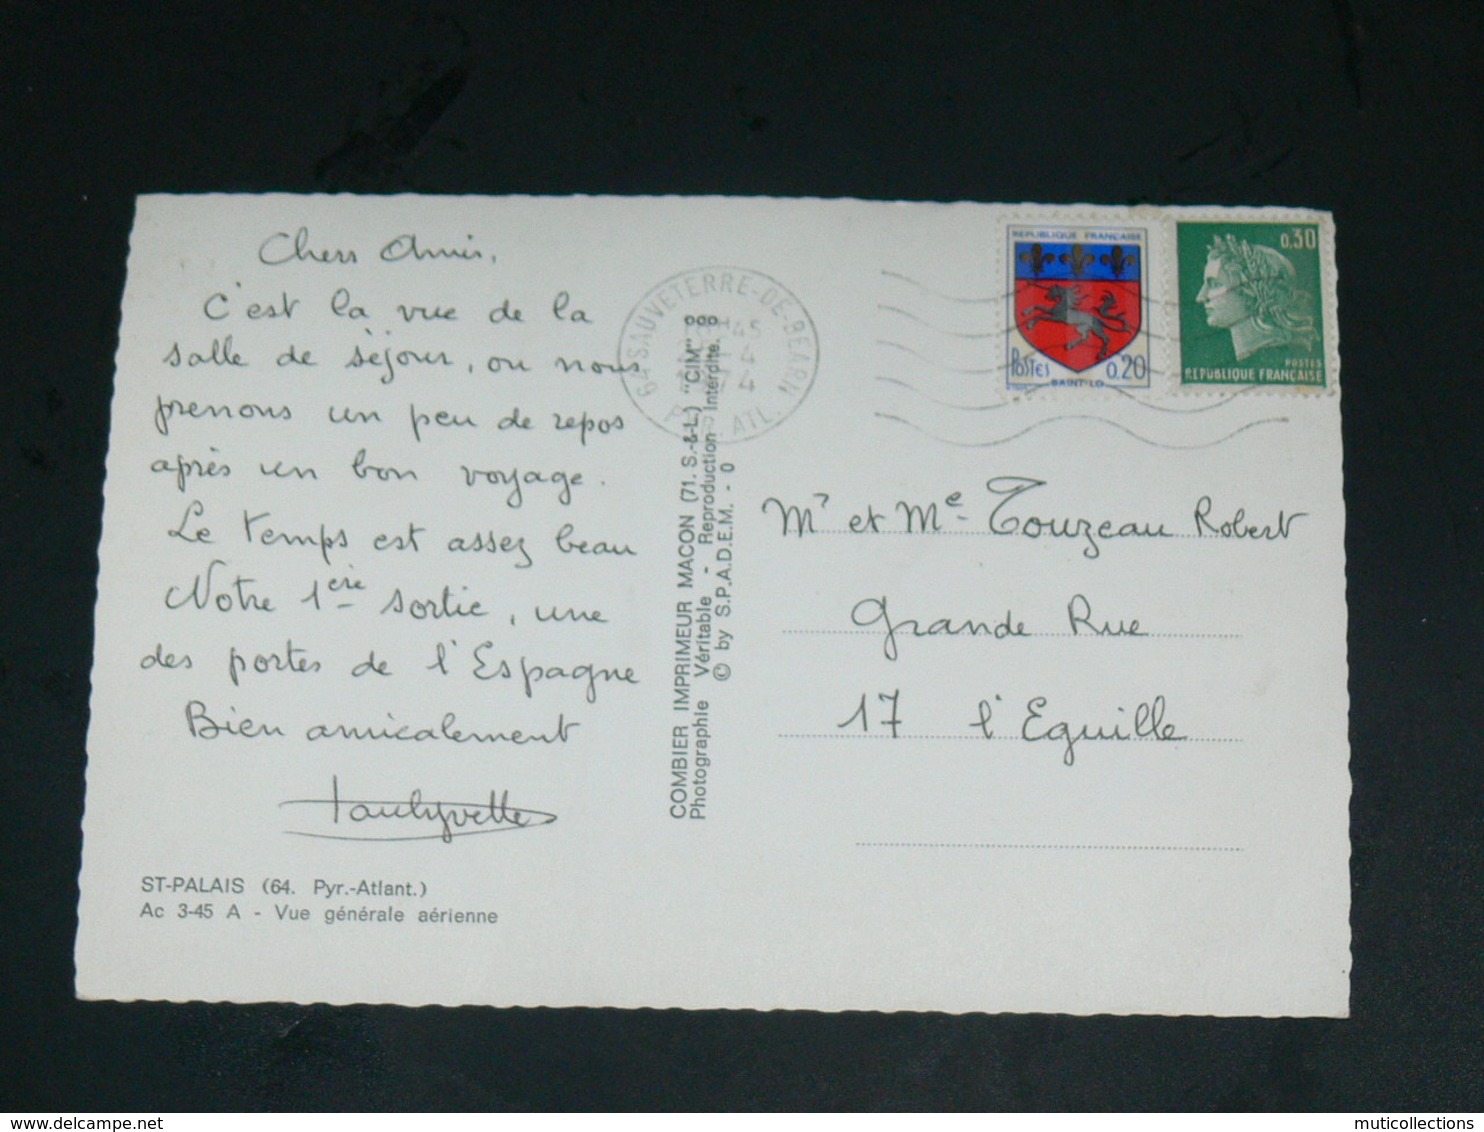 Chers Amis,
C'est la vue de la
salle de séjour, ou nous
prenons un peu de repos
après un bon voyage.
Le temps est assez beau
Notre 1ère sortie, une
des portes de l'Espagne
Bien amicalement
ST-PALAIS (64. Pyr.-Atlant.)
Ac 3-45 A - Vue générale aérienne
COMBIER IMPRIMEUR MACON (71. S.-&-L.) "CIM"
Photographie Véritable - Reproduction Interdite.
© by S.P.A.D.E.M. - 0
64 SAUVETERRE-DE-BEARN
ATL.
REPUBLIQUE FRANÇAISE
POSTES 0.20
SAINT-LO
0.30
POSTES
REPUBLIQUE FRANÇAISE
Mr et Me Touzeau Robert
Grande Rue
17 l'Eguille
delcampe.net
muticollections